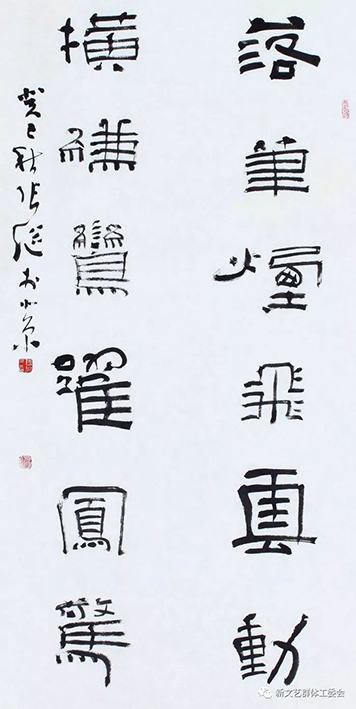 落筆煙飛雲動
橫縑鸞躍鳳驚
癸巳秋張繼於北京
新文艺群体工委会